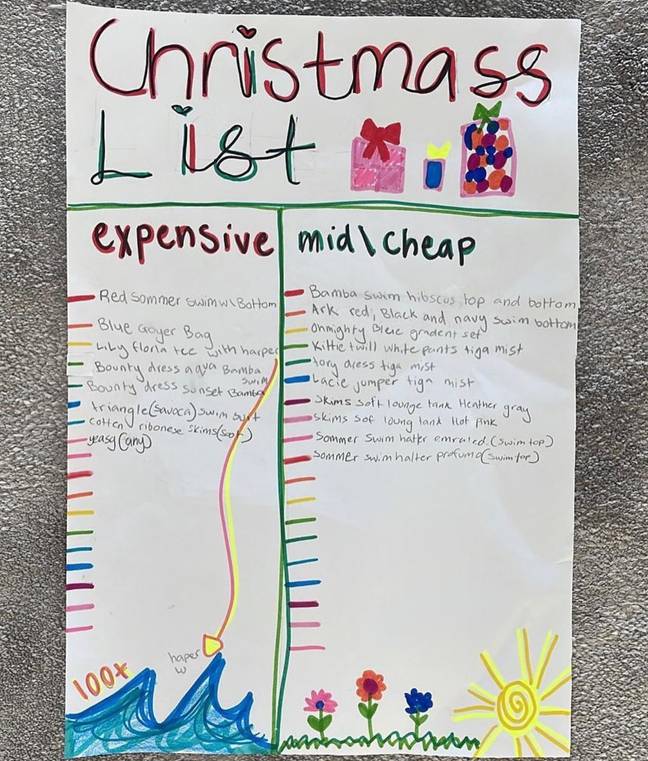 Christmass
List
expensive
mid\cheap
Red sommer swim w\Bottom
Blue Goyer Bag
Lily floria tee with harper
Bounty dress aqva Bamba
swim
Bounty dress sunset Bamba
triangle(savoca) swim suit
cotten ribonese skims(sof)
yeasy(any)
haper
w
100+
Bamba swim hibscus top and bottom
Ark red, Black and navy swim bottom
Ohmighty Bleie gradent set
Kittie twill white pants tiga mist
tory dress tiga mist
Lacie jumper tiga mist
Skims soft lounge tank Heather gray
skims sof loung tank Hot pink
Sommer Swim halter emraled.(swim top)
sommer swim halter profumo(swim top)